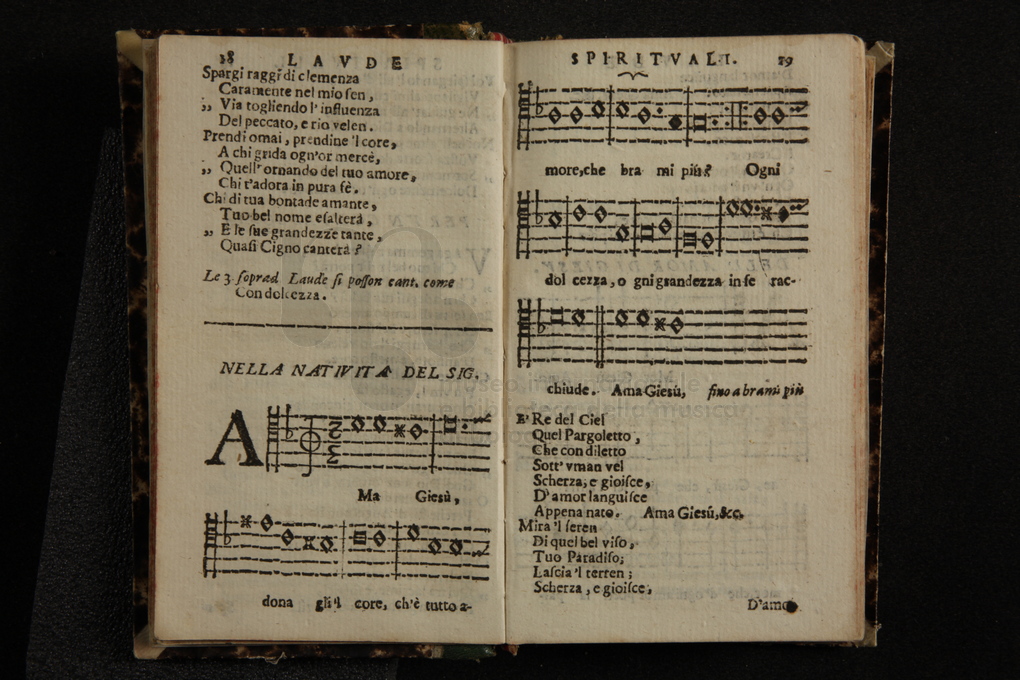 38 LAVDE
Spargi raggi di clemenza
Caramente nel mio sen,
,, Via togliendo l' influenza
Del peccato, e rio velen.
Prendi omai, prendine 'l core,
A chi grida ogn'or mercè,
,, Quell' ornando del tuo amore,
Chi t'adora in pura fè.
Chi di tua bontade amante,
Tuo bel nome esalterà,
,, E le sue grandezze tante,
Quasi Cigno canterà?
Le 3. soprad. Laude si posson cant. come
Con dolcezza.
NELLA NATIVITA DEL SIG.
A
Ma Giesù,
dona gli'l core, ch'è tutto a-
SPIRITVALI. 39
more, che bra mi più? Ogni
dol cezza, o gni grandezza in se rac-
chiude. Ama Giesù, fino a brami più
E' Re del Ciel
Quel Pargoletto,
Che con diletto
Sott' vman vel
Scherza, e gioisce,
D'amor languisce
Appena nato. Ama Giesù, &c.
Mira 'l seren
Di quel bel viso,
Tuo Paradiso;
Lascia 'l terren;
Scherza, e gioisce,